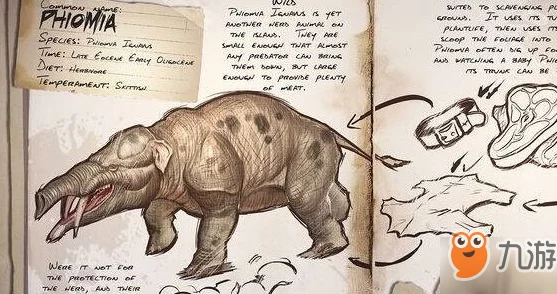 Common Name:
PHIOMIA
Species: Phiomia Ignavus
Time: Late Eocene Early Oligocene
Diet: Herbivore
Temperament: Skittish
Wild
Phiomia Ignavus is yet
another herd animal on
the island. They are
small enough that almost
any predator can bring
them down, but large
enough to provide plenty
of meat.
Were it not for
the protection of
the herd, and their
suited to scavenging
ground. It uses its
plantlife, then uses its
scoop the foliage into
Phiomia often dig up fo
and watching a baby Phi
its trunk can be
九游